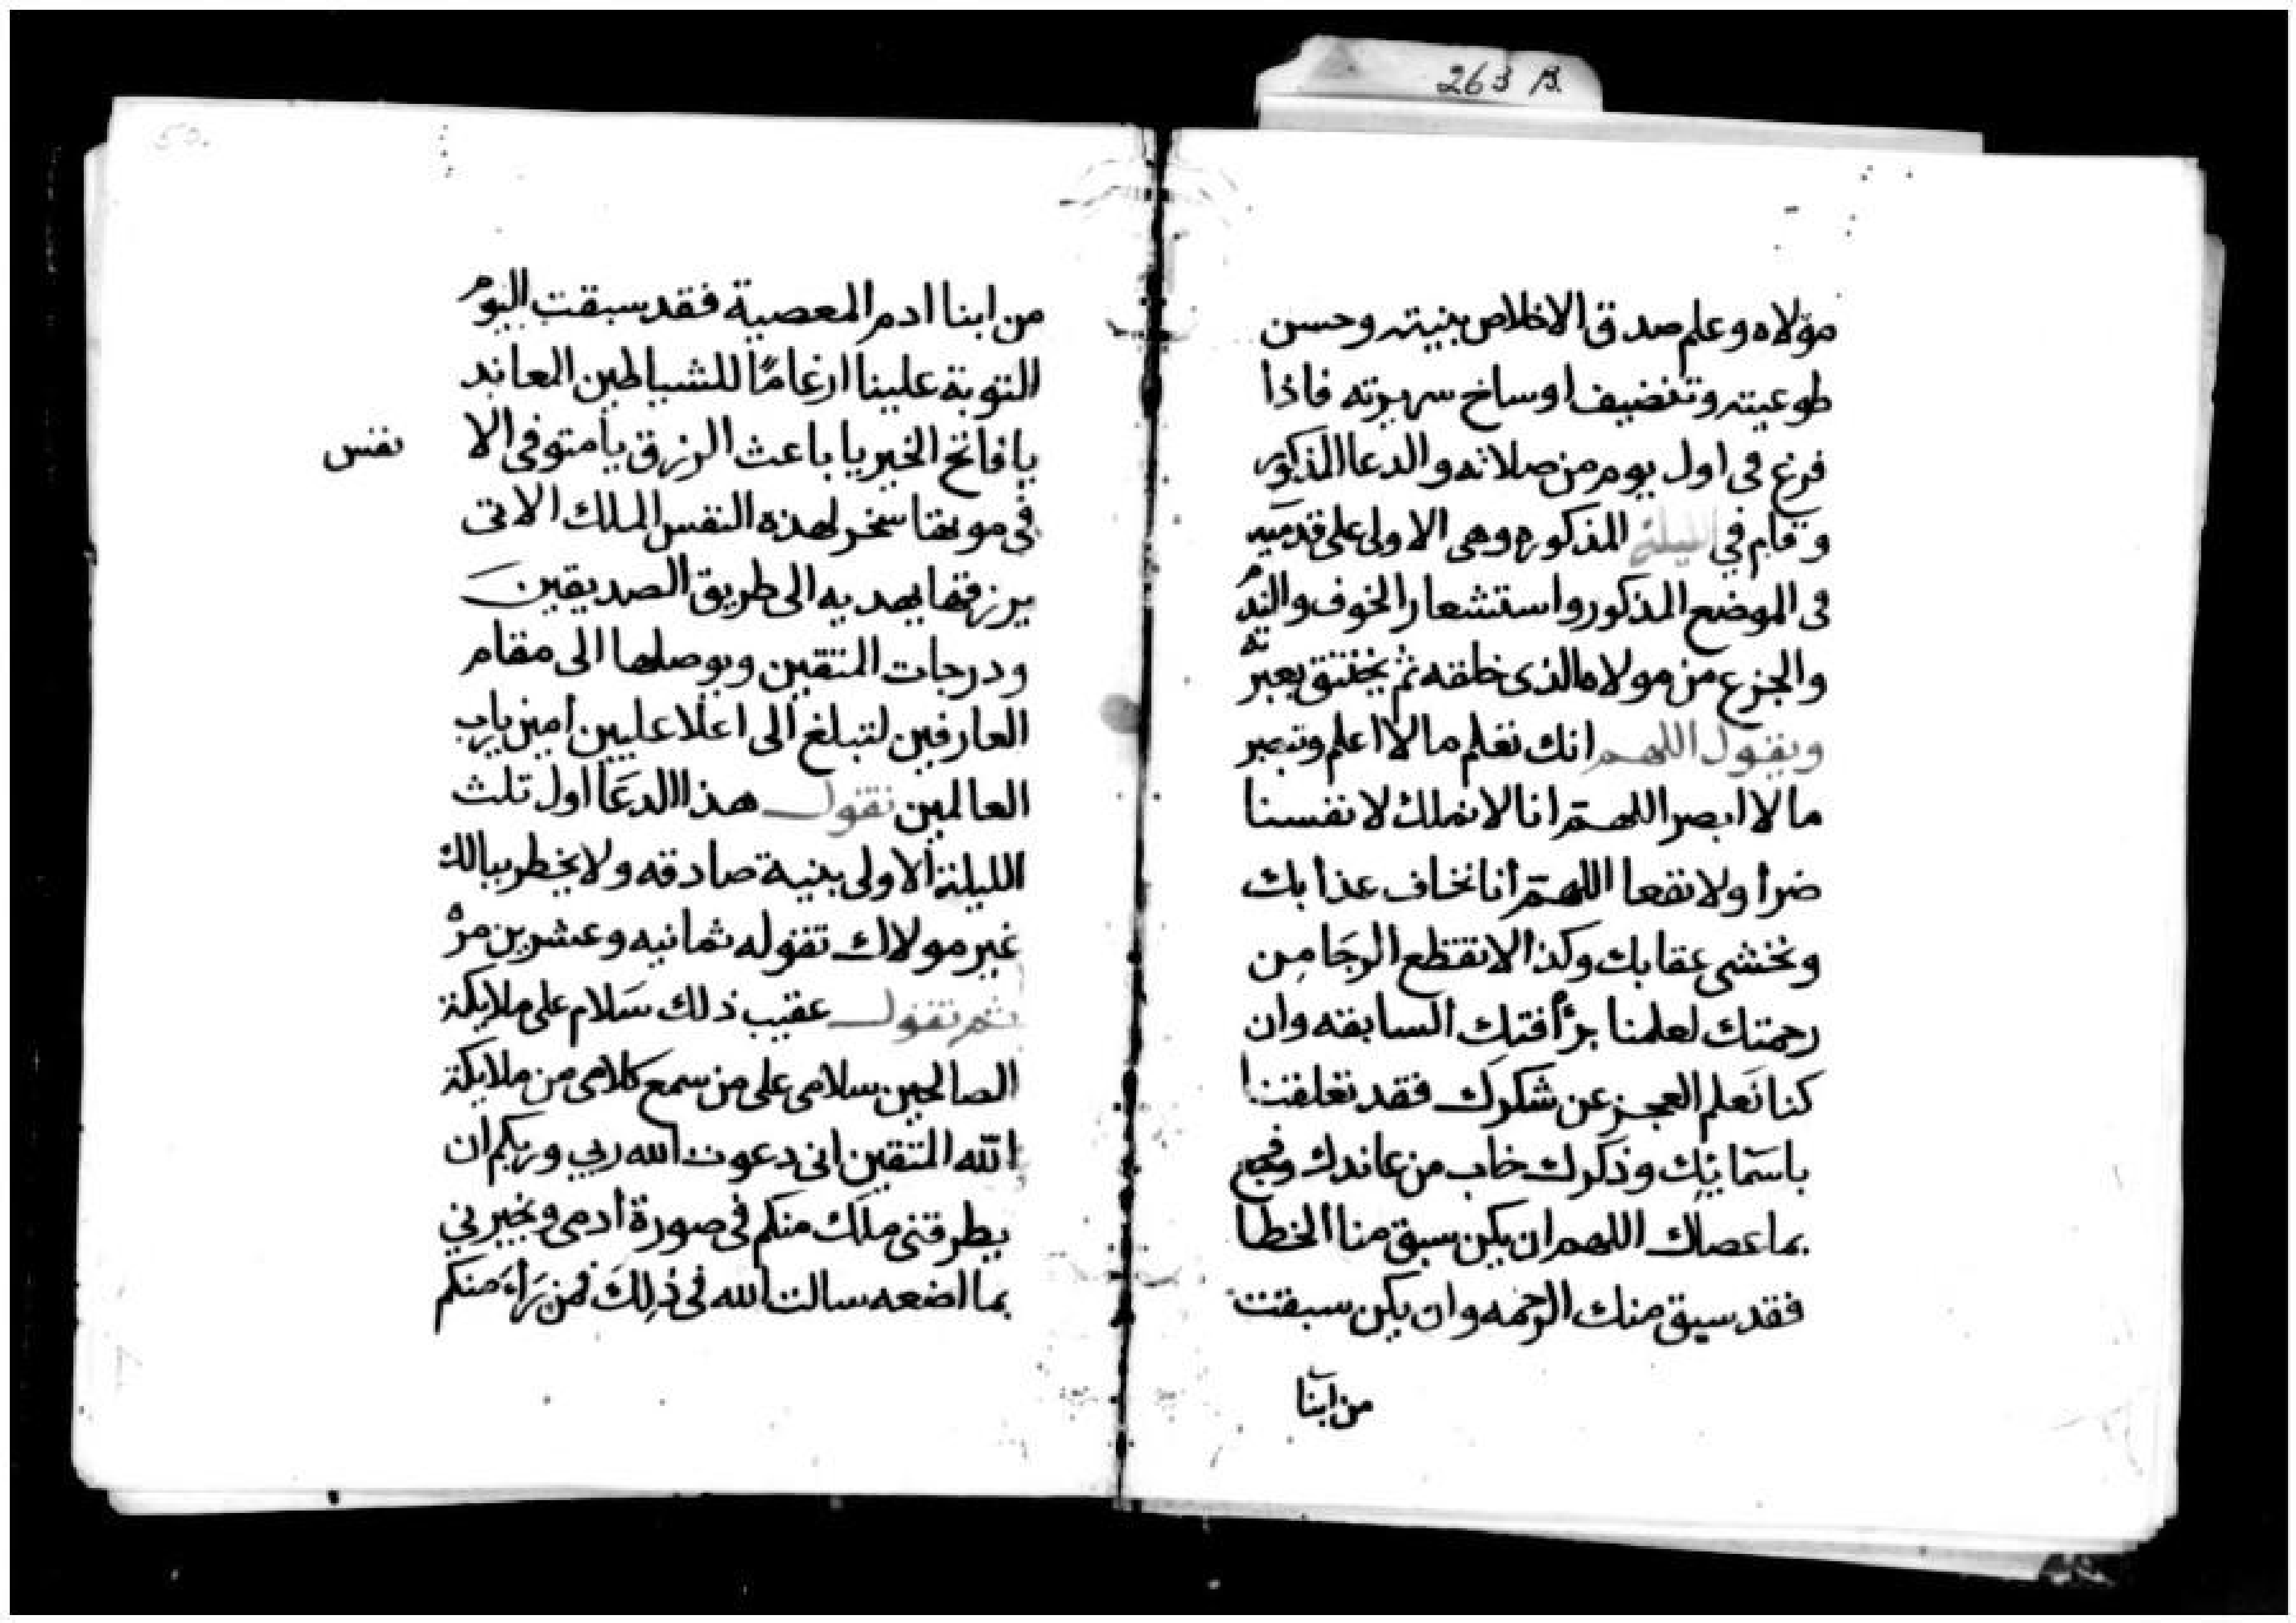 263 B.
مولاه وعلم صدق الاخلاص بنيته وحسن
طوعيته وتنضيف اوساخ سريرته فاذا
فرغ فى اول يوم من صلاته والدعا المذكور
وقام في الليلة المذكوره وهى الاولى على قدميه
فى الموضع المذكور واستشعار الخوف والندم
والجزع من مولاه الذى خلقه ثم يختنق بعبرته
ويقول اللهم انك تعلم ما لا اعلم وتبصر
ما لا ابصر اللهم انا لا نملك لانفسنا
ضرا ولا نفعا اللهم انا نخاف عذابك
ونخشى عقابك وكذا لا نقطع الرجا من
رحمتك لعلمنا برأفتك السابقه وان
كنا نعلم العجز عن شكرك فقد تعلقنا
باسمائك وذكرك خاب من عاندك
بما عصاك اللهم ان يكن سبق منا الخطا
فقد سبق منك الرحمه وان يكن سبقت
من ابنا
50.
من ابنا ادم المعصية فقد سبقت اليوم
التوبة علينا ارغامًا للشياطين المعاند
يا فاتح الخير يا باعث الرزق يا متوفى الا نفس
فى موتها سخر لهذه النفس الملك الاتى
برزقها يهديه الى طريق الصديقين
ودرجات المتقين ويوصلها الى مقام
العارفين لتبلغ الى اعلا عليين امين يارب
العالمين تقول هذا الدعا اول ثلث
الليلة الاولى بنية صادقه ولا يخطر ببالك
غير مولاك تقوله ثمانيه وعشرين مره
ثم تقول عقيب ذلك سلام على ملايكة
الصالحين سلامى على من سمع كلامى من ملايكة
الله المتقين انى دعوت الله ربي وربكم ان
يطرقنى ملك منكم فى صورة ادمى ويخبرني
بما اضعه سالت الله فى ذلك فمن راه منكم